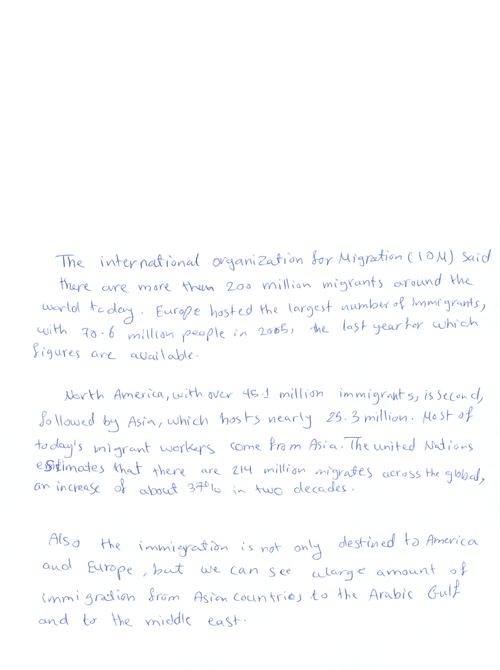 The international organization for Migration (IOM) said
there are more than 200 million migrants around the
world today. Europe hosted the largest number of immigrants,
with 70.6 million people in 2005, the last year for which
figures are available.
North America, with over 45.1 million immigrants, is second,
followed by Asia, which hosts nearly 25.3 million. Most of
today's migrant workers come from Asia. The united Nations
estimates that there are 214 million migrates across the global,
an increase of about 37% in two decades.
Also the immigration is not only destined to America
and Europe, but we can see a large amount of
immigration from Asian countries to the Arabic Gulf
and to the middle east.